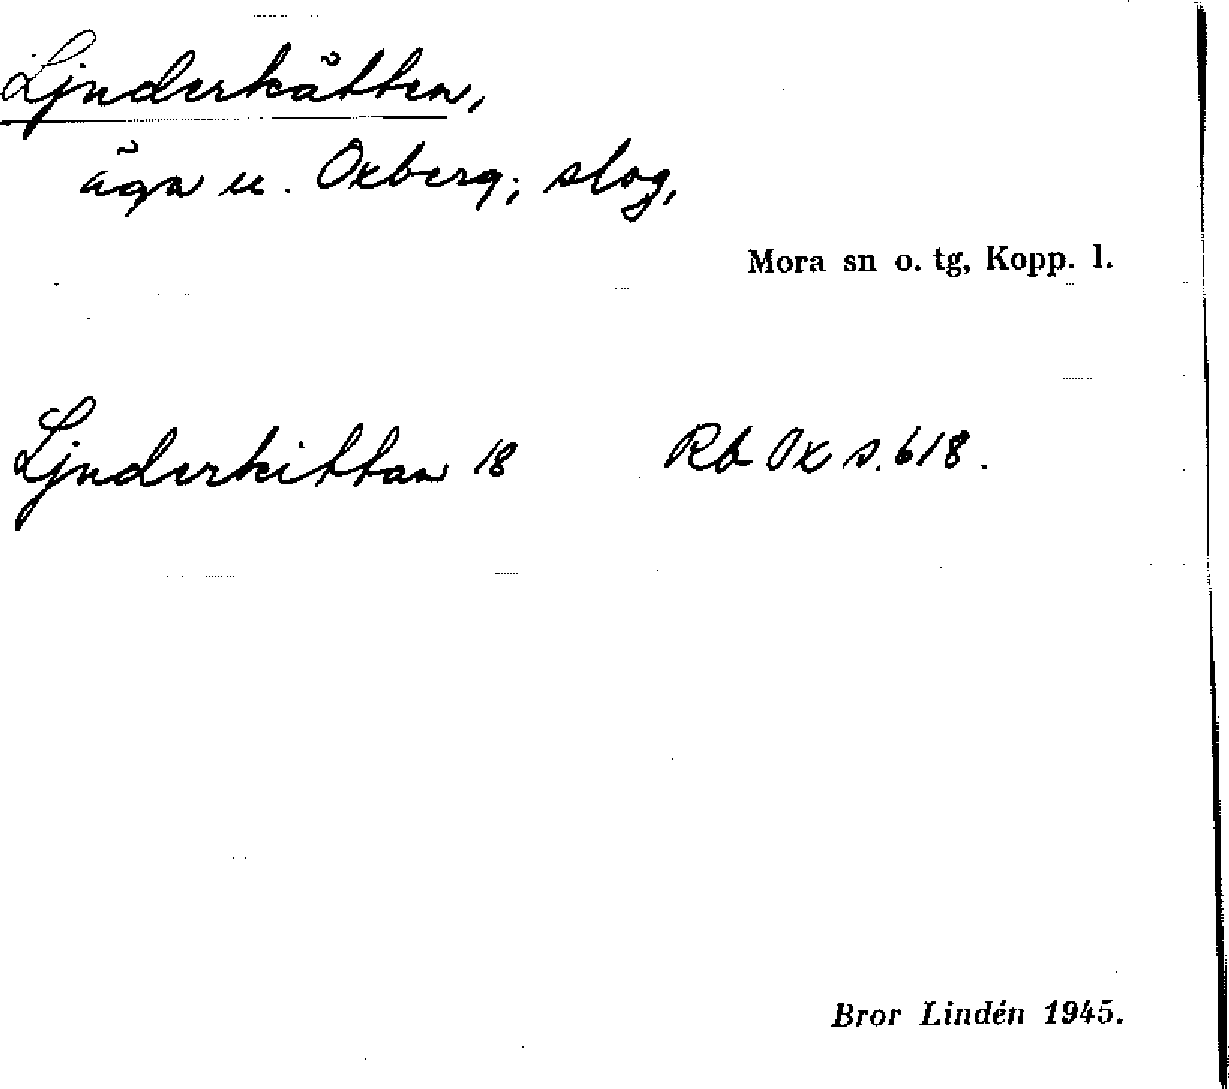 Ljnderkätten,
äga u. Oxberg; slog,
Mora sn o. tg, Kopp. l.
Ljnderkittan 18 Rb Ox s. 618.
Bror Lindén 1945.